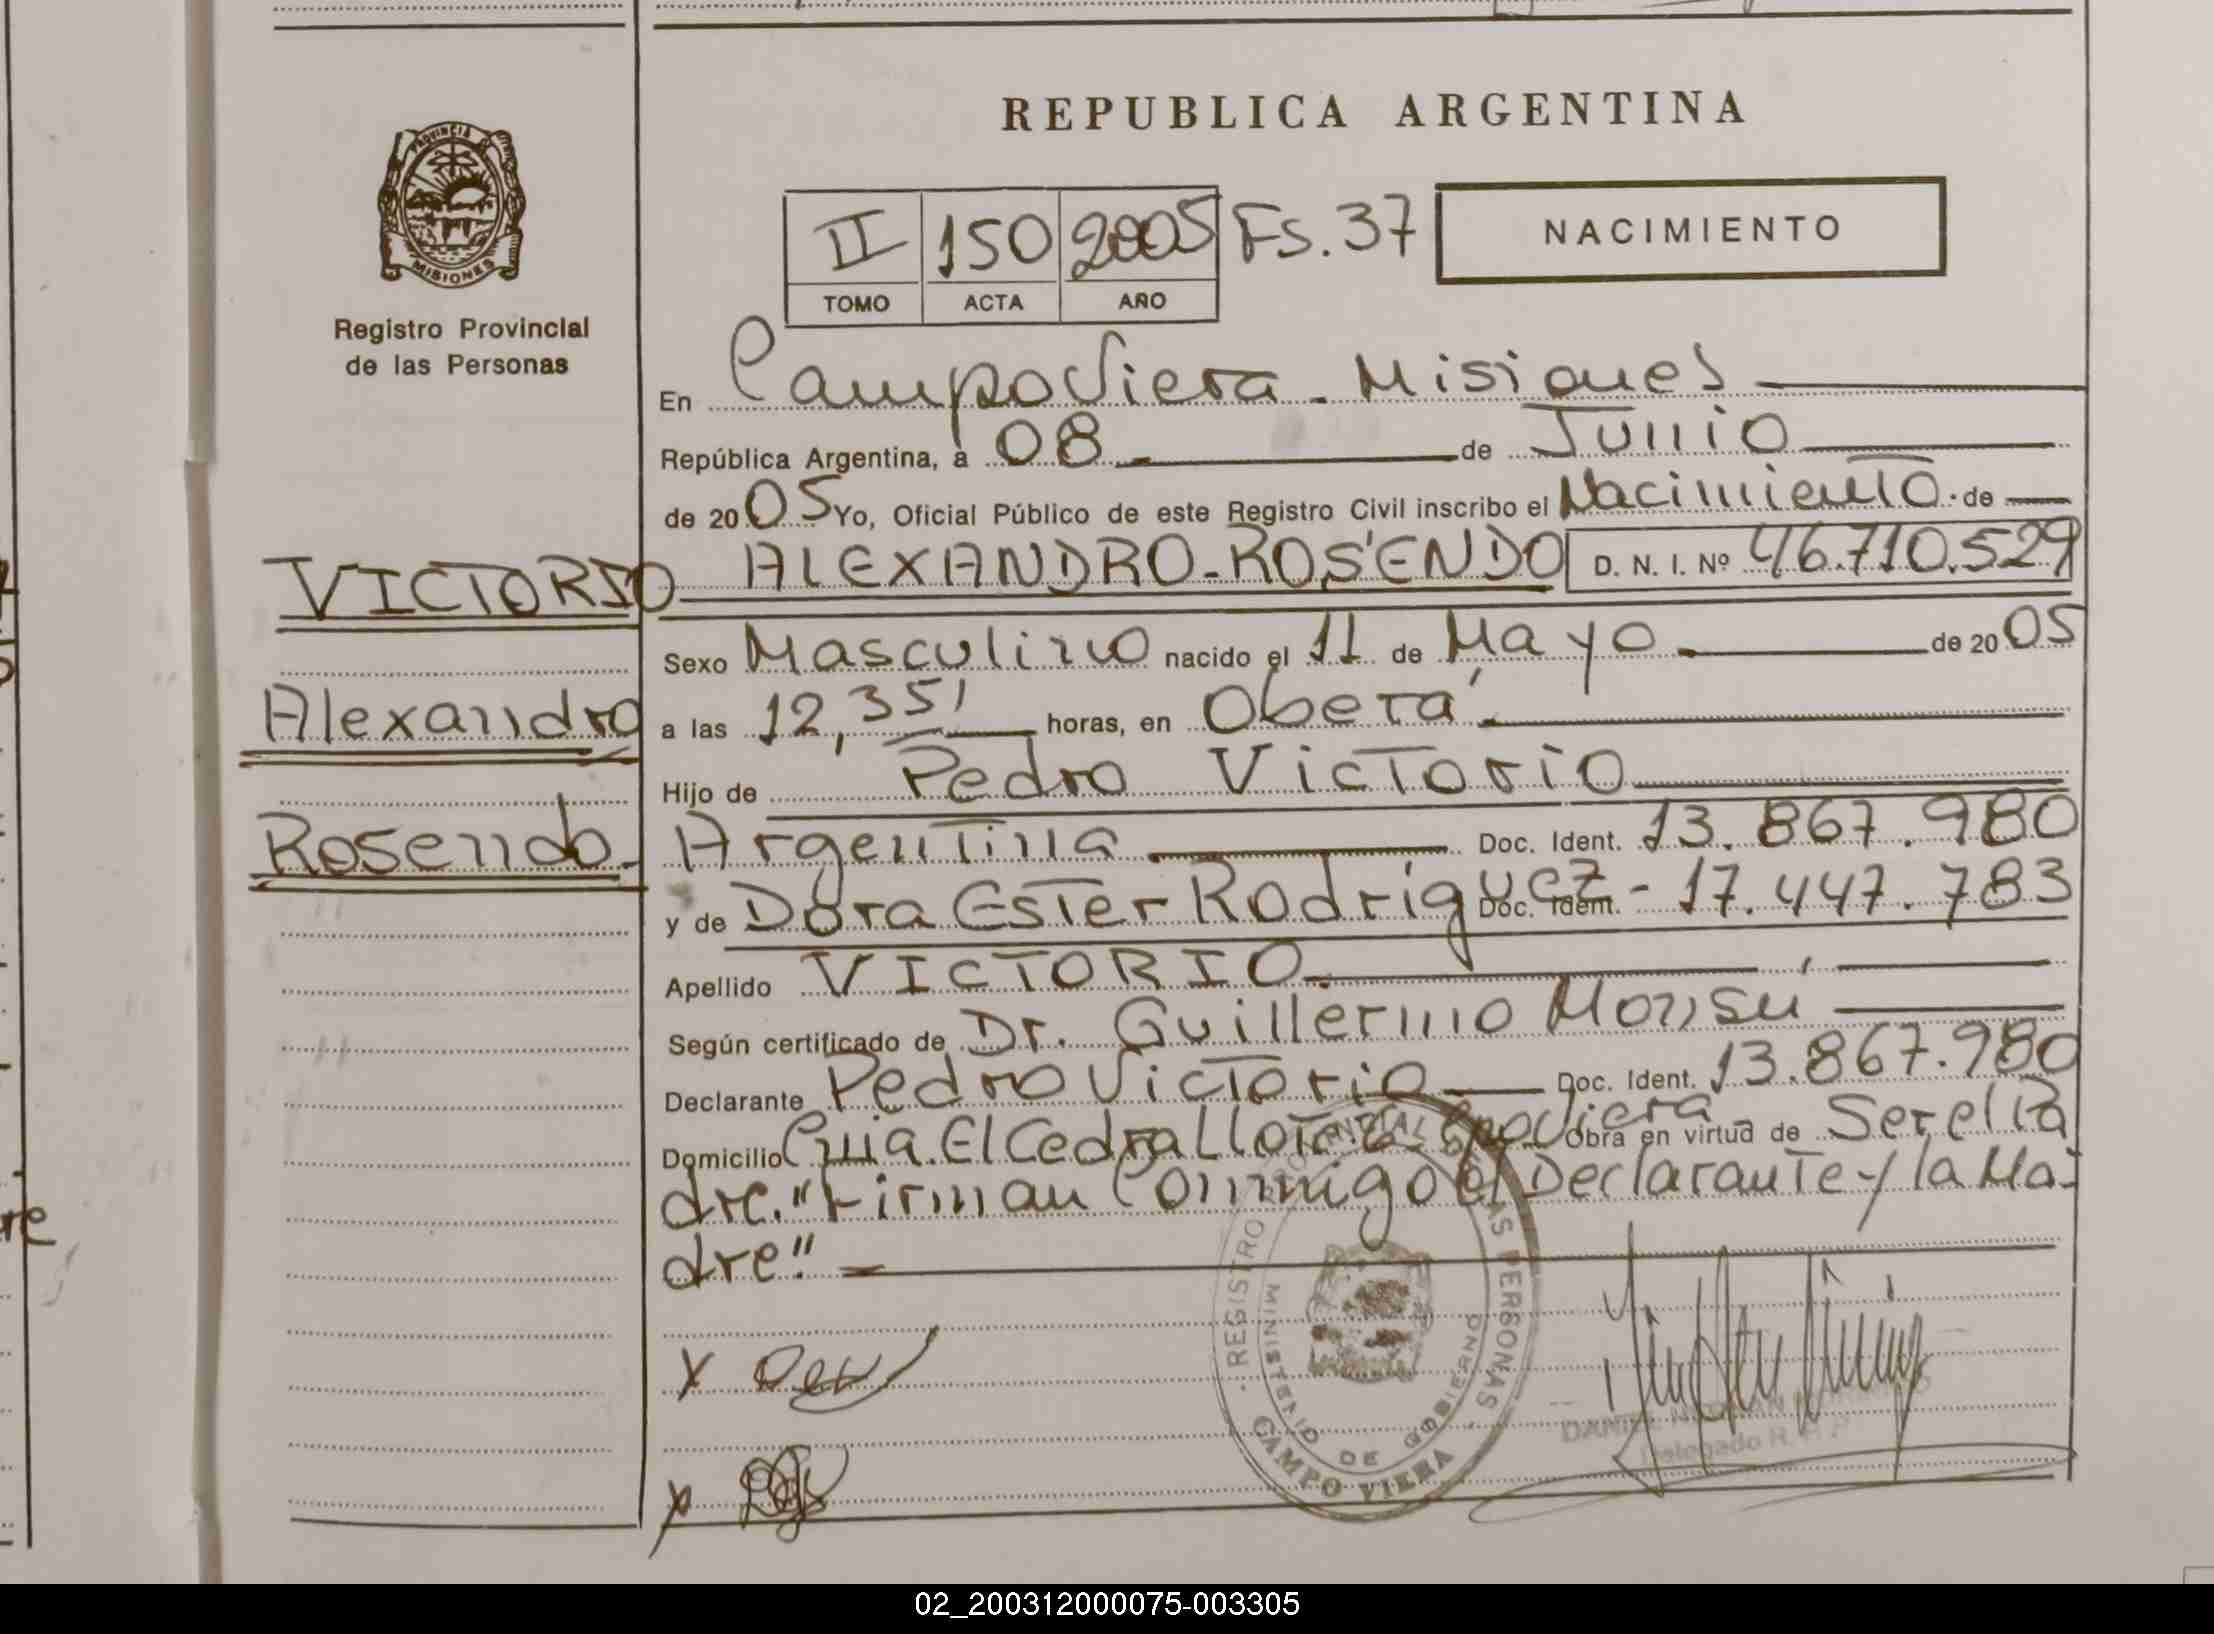 REPUBLICA ARGENTINA
PROVINCIA
MISIONES
Registro Provincial
de las Personas
II 150 2005 Fs. 37
TOMO ACTA AÑO
NACIMIENTO
En Campo Viera - Misiones
República Argentina, a 08 de Junio
de 2005 Yo, Oficial Público de este Registro Civil inscribo el Nacimiento de
VICTORIO ALEXANDRO-ROSENDO D. N. I. Nº 46.710.529
Sexo Masculino nacido el 11 de Mayo de 2005
Alexandro
a las 12,35' horas, en Oberá
Hijo de Pedro Victorio
Rosendo
Argentina Doc. Ident. 13.867.980
y de Dora Ester Rodriguez Doc. Ident. - 17.447.783
Apellido VICTORIO
Según certificado de Dr. Guillermo Monsu
Declarante Pedro Victorio Doc. Ident. 13.867.980
Domicilio El Cedral Lote Viera Obra en virtud de Ser el Pa
dre. "Firman Conmigo el Declarante y la Ma-
dre"
X
X
REGISTRO PROVINCIAL DE LAS PERSONAS
MINISTERIO DE GOBIERNO
CAMPO VIERA
DANIEL
Delegado R. P.
02_200312000075-003305